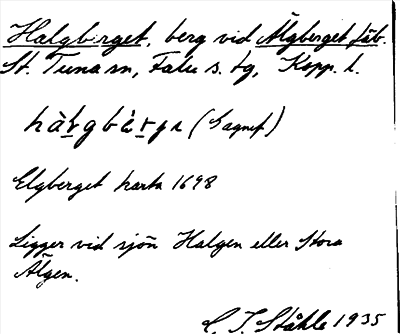 Halgberget, berg vid Älgberget fäb.
St. Tuna sn, Falu s. tg, Kopp. l.
(Sagnef)
Elgberget karta 1698
Ligger vid sjön Halgen eller Stora
Älgen.
C. I. Ståhle 1935